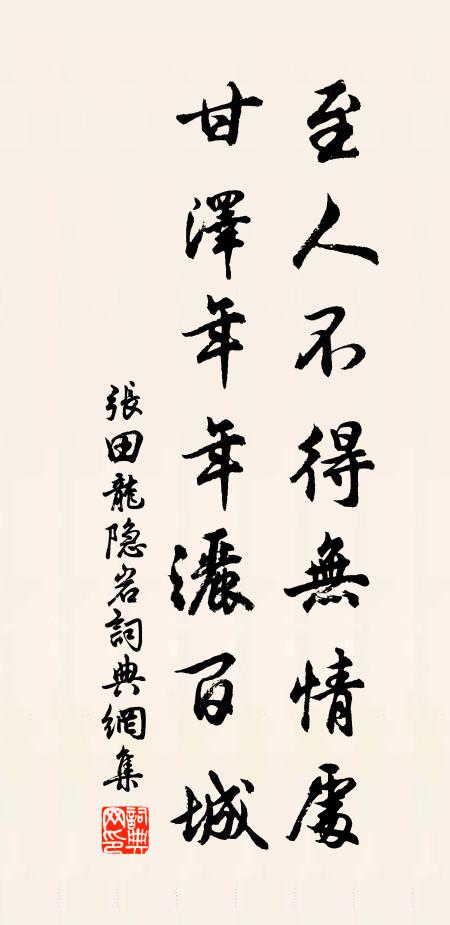 至人不得無情處
甘澤年年灑百城
張田龍隐岩詞典網集
詞典網印